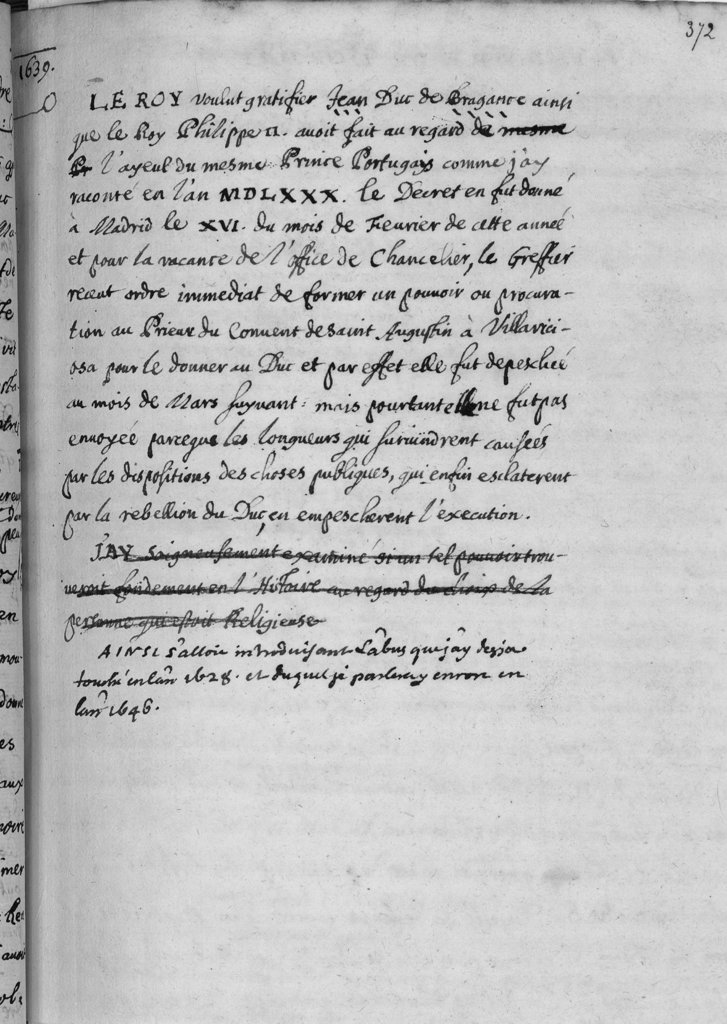 372
1639.
LE ROY voulut gratifier Jean Duc de Bragance ainsi
que le Roy Philippe II. avoit fait au regard de mesme
Pr l'ayeul du mesme Prince Portugais comme j'ay
raconté en l'an MDLXXX. le Decret en fut donné
à Madrid le XVI. du mois de Feurier de cette année
et pour la vacance de l'office de Chancelier, le Greffier
receut ordre immediat de former un pouvoir ou procura-
tion au Prieur du Convent de saint Augustin à Villavici-
osa pour le donner au Duc et par effet elle fut depeschée
au mois de Mars suyvant: mais pourtant elle ne fut pas
envoyée parceque les longueurs qui survindrent causées
par les dispositions des choses publiques, qui enfin esclaterent
par la rebellion du Duc, en empescherent l'execution.
J'AY soigneusement examiné si un tel pouvoir trou-
veroit fondement en l'Histoire au regard du choix de la
personne qui estoit Religieuse
AINSI s'alloit introduisant l'abus que j'ay desja
touché en l'an 1628. et duquel je parleray encore en
l'an 1646.